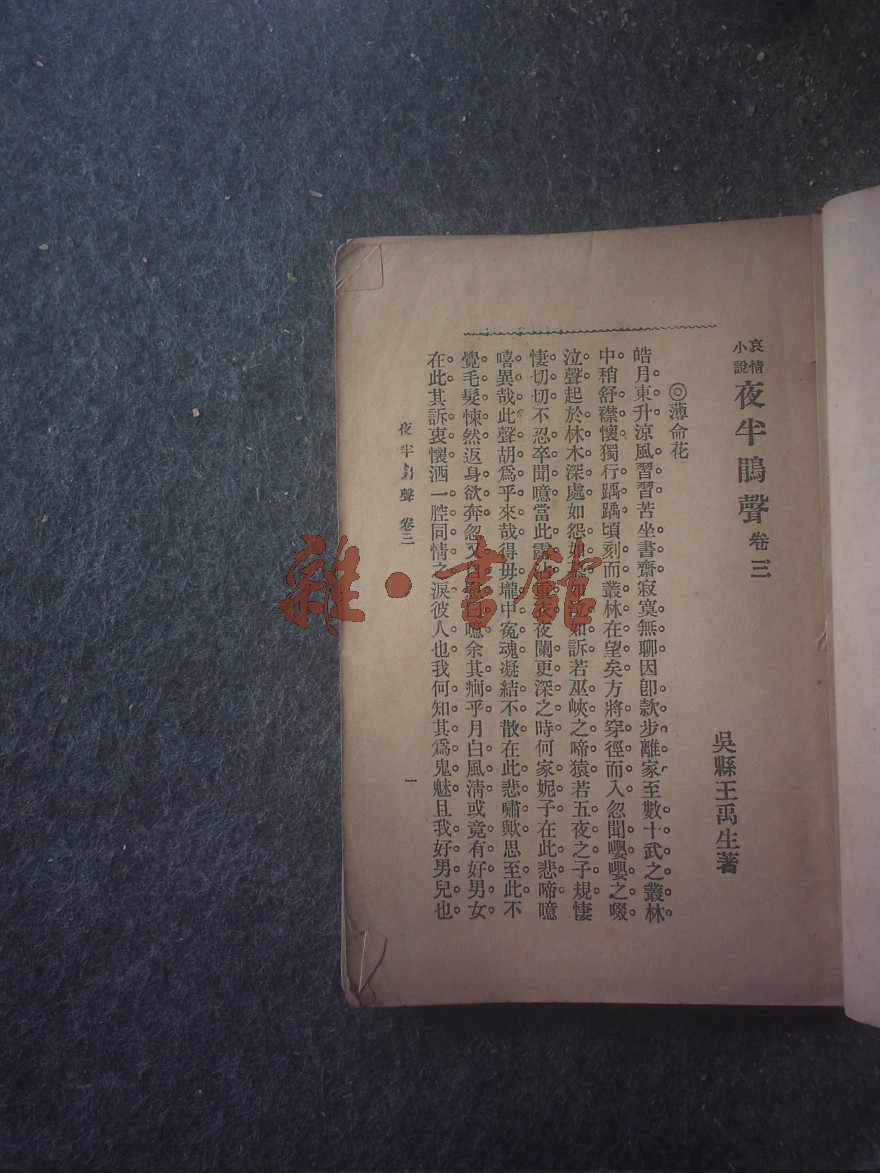 哀情小說 夜半鵑聲 卷三
吳縣王禹生著
◎薄命花
皓月東升涼風習習苦坐書齋寂寞無聊因卽款步離家至數十武之叢林
中稍舒襟懷獨行踽踽頃刻而叢林在望矣方將穿徑而入忽聞嚶嚶之啜
泣聲起於林木深處如怨如慕如泣如訴若巫峽之啼猿若五夜之子規悽
悽切切不忍卒聞噫當此露 夜夜闌更深之時何家妮子在此悲啼噫
嘻異哉此聲胡爲乎來哉得毋壠中冤魂凝結不散在此悲嘯歟思至此不
覺毛髮悚然返身欲奔忽又 噫余其痴乎月白風淸或竟有好男女
在此其訴衷懷洒一腔同情之淚彼人也我何知其爲鬼魅且我好男兒也
夜半 聲 卷三
一
雜·書館